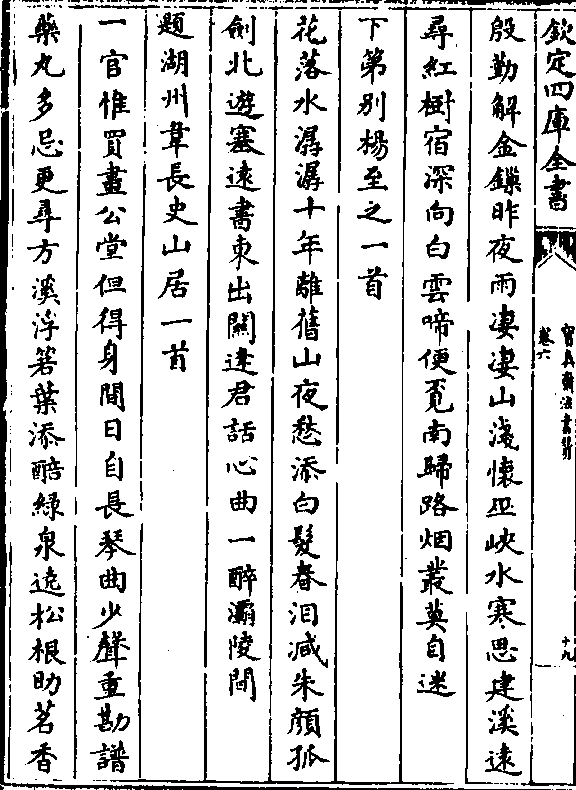 欽定四庫全書
寶真齋法書贊
卷六
十九
殷勤解金鏁昨夜雨淒淒山淺懷巫峽水寒思建溪遠
尋紅樹宿深向白雲啼便覓南歸路烟叢莫自迷
下第別楊至之一首
花落水潺潺十年離舊山夜愁添白髮春泪减朱顔孤
劍北遊塞遠書東出關逢君話心曲一醉灞陵間
題湖州韋長史山居一首
一官惟買畫公堂但得身間日自長琴曲少聲重勘譜
藥丸多忌更尋方溪浮箬葉添醅綠泉遶松根助茗香